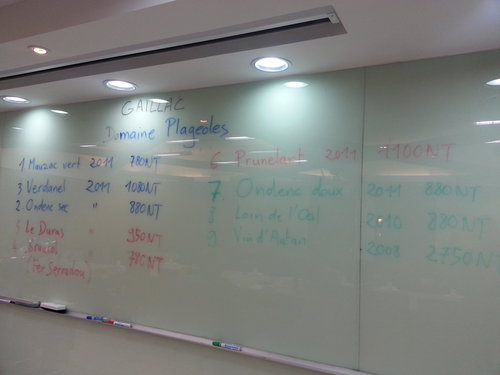 GAILLAC
Domaine Plageoles
1 Mauzac vert 2011 780NT
3. Verdanel 2011 1080NT
2. Ondenc sec " 880NT
5. Le Duras " 950NT
4. Braucol " 780NT
(Fer Servadou)
6 Prunelart 2011 1100NT
7. Ondenc doux 2011 880NT
8 Loin de l'Oeil 2010 880NT
9. Vin d'Autan 2008 2750NT